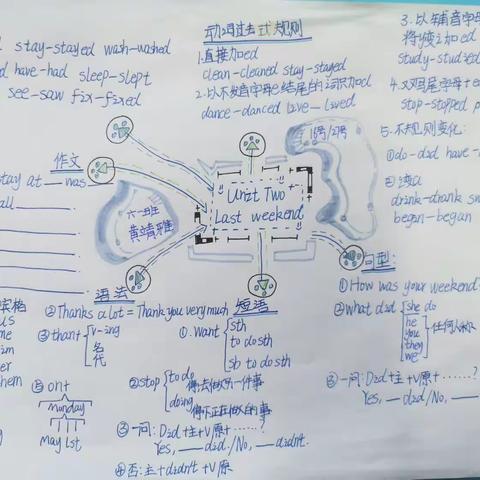 stay-stayed wash-washed
have-had sleep-slept
see-saw fix-fixed
动词过去式规则
1.直接加ed
clean-cleaned stay-stayed
2.以不发音字母e结尾的词只加d
dance-danced live-lived
3.以辅音字母
将y变i加ed
study-studied
4.双写尾字母+e
stop-stopped p
5.不规则变化:
①do-did have-
drink-drank sw
began-began
15号/2号
作文
stay at was
all
六一班
黄靖雅
Unit Two
Last weekend
句型:
①How was your weekend?
②what did
she do
he
you
they
we
任何人称
③一问:Did+主+V原+……?
Yes, __ did/No, __
语法
②Thanks a lot=Thank you very much
③than+
v-ing
名
代
宾格
us
me
him
er
them
⑤on+
munday
May 1st
短语
①.Want
sth
to do sth
sb to do sth
②stop
to do 停去做另一件事
doing 停下正在做的事
③一问:Did+主+V原+……?
Yes, __ did./No, __ didn't.
④否:主+didn't+V原